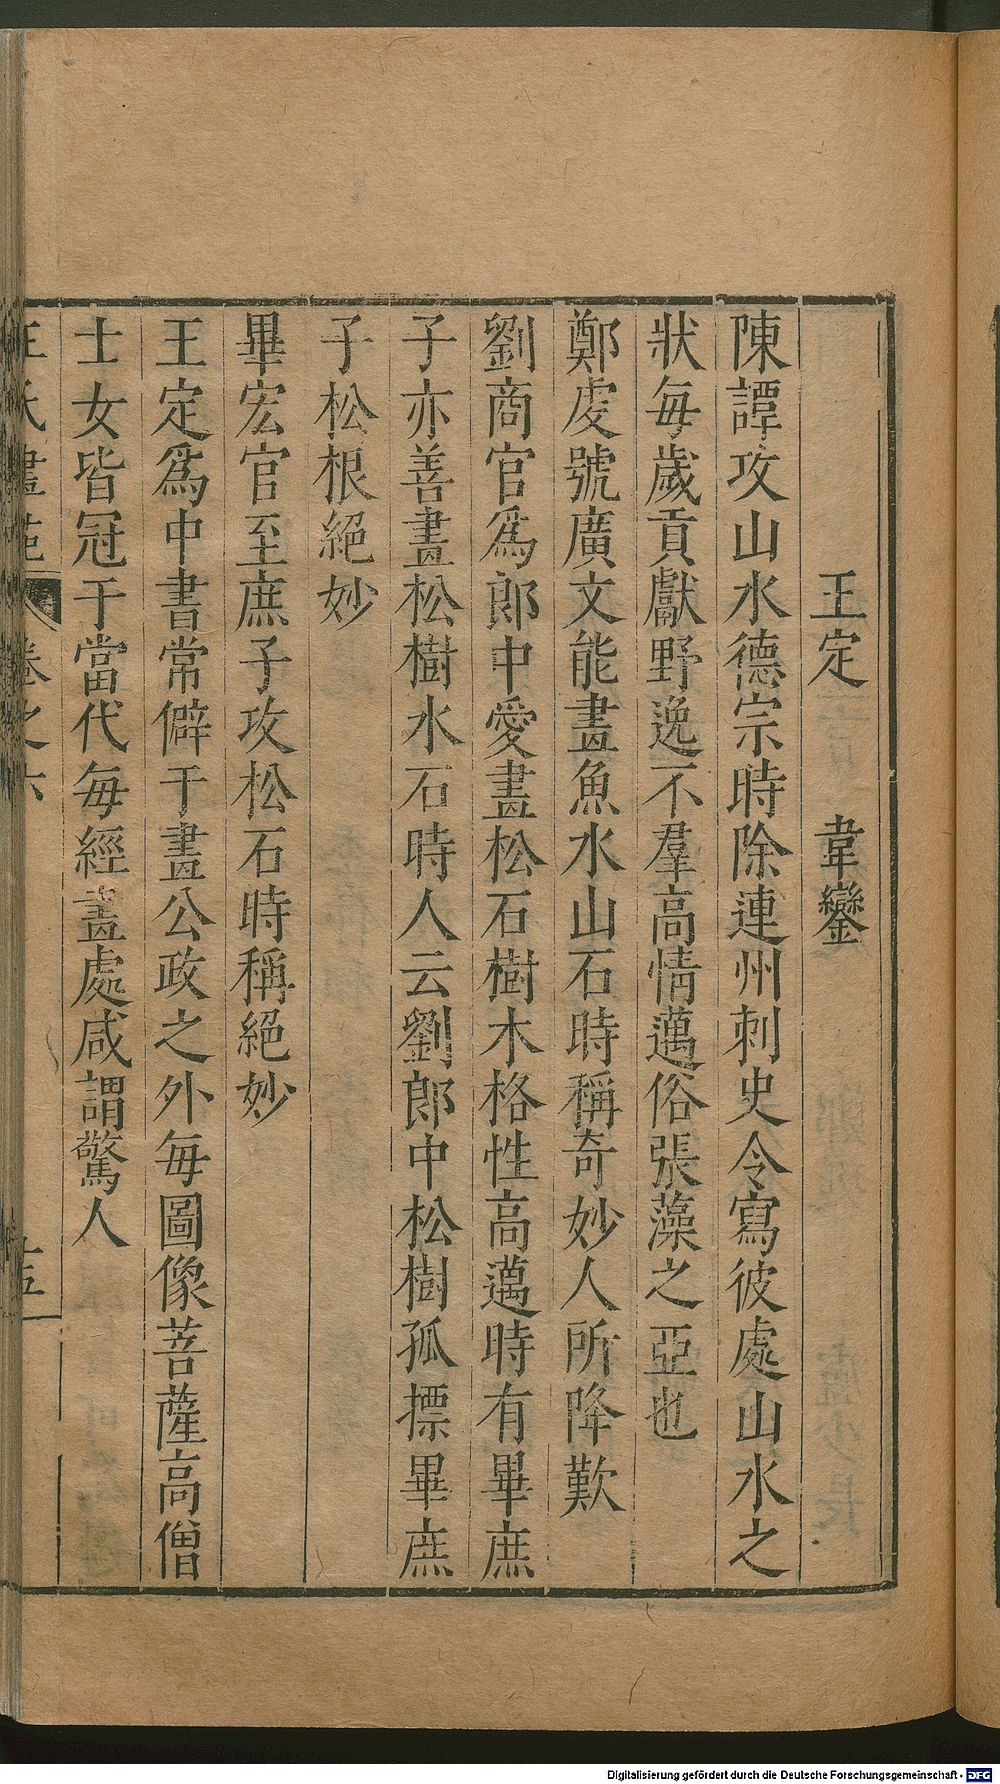 王定　韋鑾
陳譚攻山水德宗時除連州刺史令寫彼處山水之
狀每歲貢獻野逸不羣高情邁俗張藻之亞也
鄭虔號廣文能畫魚水山石時稱奇妙人所降歎
劉商官爲郎中愛畫松石樹木格性高邁時有畢庶
子亦善畫松樹水石時人云劉郎中松樹孤摽畢庶
子松根絕妙
畢宏官至庶子攻松石時稱絕妙
王定爲中書常僻于畫公政之外每圖像菩薩高僧
士女皆冠于當代每經畫處咸謂驚人
王氏畫苑　卷之六　十五
Digitalisierung gefördert durch die Deutsche Forschungsgemeinschaft - DFG